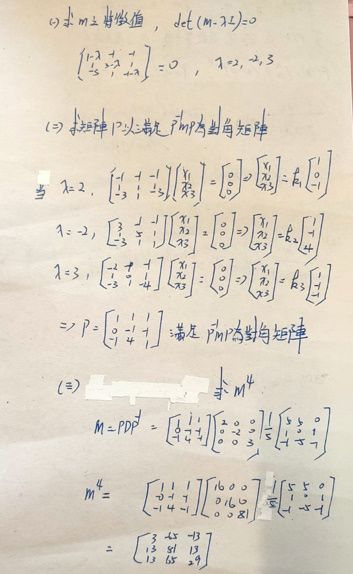 (一) 求 M 之特徵值, det(M-λI)=0
[1-λ -1 -1; 1 3-λ 1; -3 1 -1-λ] = 0, λ=2, -2, 3
(二) 求矩陣 P 以滿足 P⁻¹MP 為對角矩陣
當 λ=2, [-1 -1 -1; 1 1 1; -3 1 -3][x1; x2; x3] = [0; 0; 0] ⇒ [x1; x2; x3] = k1[1; 0; -1]
λ=-2, [3 -1 -1; 1 5 1; -3 1 1][x1; x2; x3] = [0; 0; 0] ⇒ [x1; x2; x3] = k2[1; -1; 4]
λ=3, [-2 -1 -1; 1 0 1; -3 1 -4][x1; x2; x3] = [0; 0; 0] ⇒ [x1; x2; x3] = k3[1; -1; -1]
⇒ P = [1 1 1; 0 -1 -1; -1 4 -1] 滿足 P⁻¹MP 為對角矩陣
(三) 求 M⁴
M = PDP⁻¹ = [1 1 1; 0 -1 -1; -1 4 -1][2 0 0; 0 -2 0; 0 0 3] 1/5 [5 5 0; 1 0 1; -1 -5 -1]
M⁴ = [1 1 1; 0 -1 -1; -1 4 -1][16 0 0; 0 16 0; 0 0 81] 1/5 [5 5 0; 1 0 1; -1 -5 -1]
= [3 -65 -13; 13 81 13; 13 65 29]